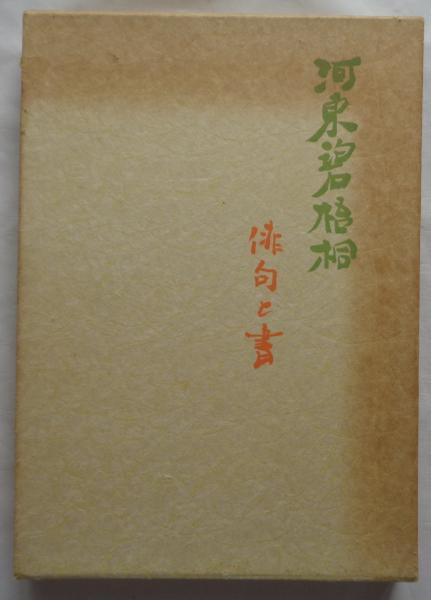 河東碧梧桐
俳句と書